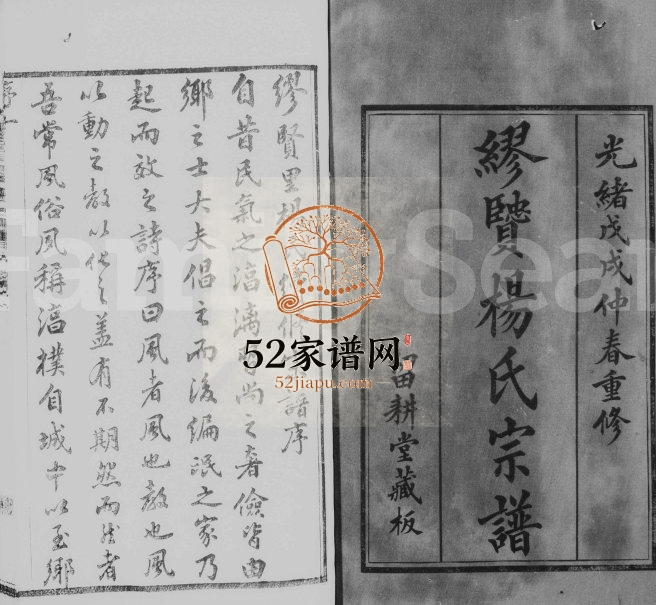 光緒戊戌仲春重修
繆賢楊氏宗譜
留耕堂藏板
繆賢里楊 譜序
自昔民氣之漓 尚之奢儉皆由
鄉之士大夫倡之而後編氓之家乃
起而效之詩序曰風者風也教也風
以動之教以化之蓋有不期然而然者
吾常風俗風稱湻樸自誠中以至鄉
序
52家谱网
52jiapu.com
Family Sear